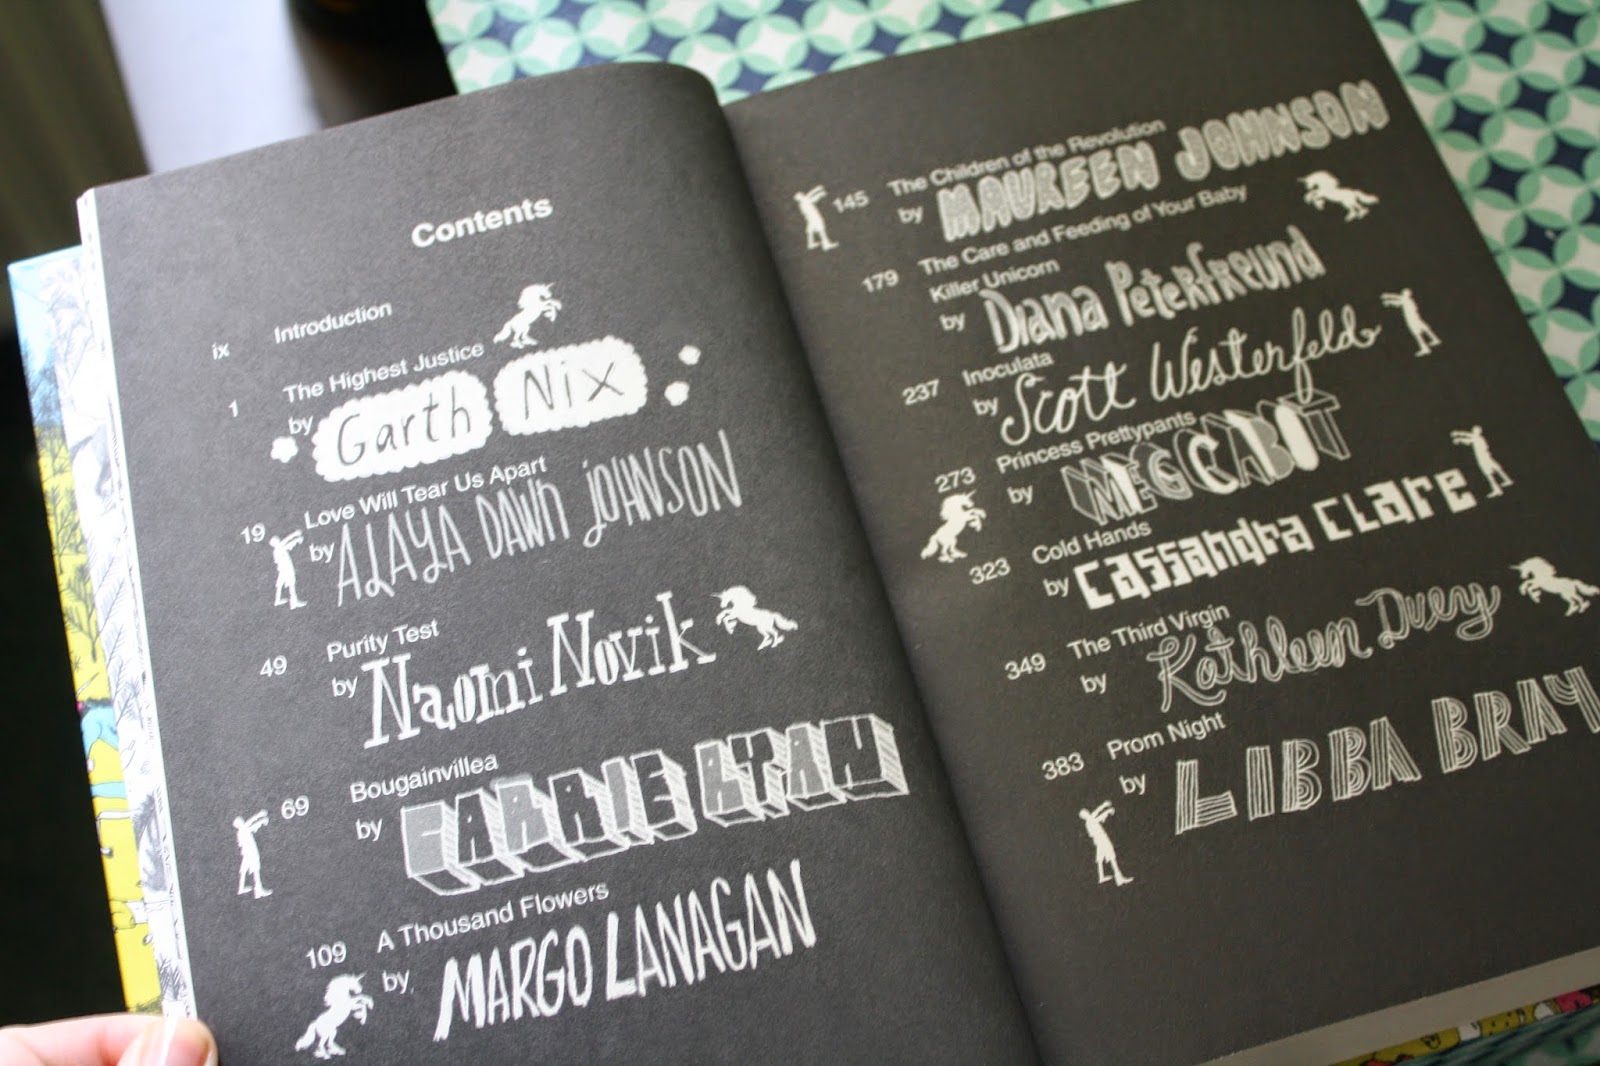 Contents
ix Introduction
1 The Highest Justice
by Garth Nix
19 Love Will Tear Us Apart
by ALAYA DAWN JOHNSON
49 Purity Test
by Naomi Novik
69 Bougainvillea
by CARRIE RYAN
109 A Thousand Flowers
by MARGO LANAGAN
145 The Children of the Revolution
by MAUREEN JOHNSON
179 The Care and Feeding of Your Baby
Killer Unicorn
by Diana Peterfreund
237 Inoculata
by Scott Westerfeld
273 Princess Prettypants
by MEG CABOT
323 Cold Hands
by Cassandra Clare
349 The Third Virgin
by Kathleen Duey
383 Prom Night
by LIBBA BRAY